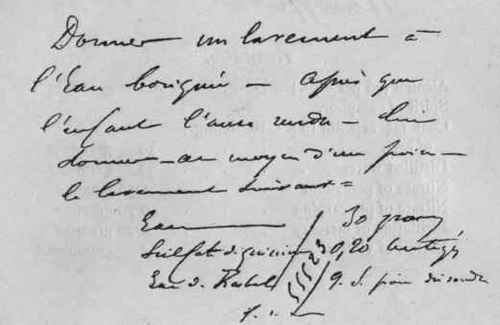 Donner un lavement à
l'Eau boriquée – Après que
l'enfant l'aura rendu – lui
donner – au moyen d'une poire –
le lavement suivant =
Eau 30 gram
Sulfat d. quinine 0,20 centigr
Eau d. Rabel q. s. pour dissoudre